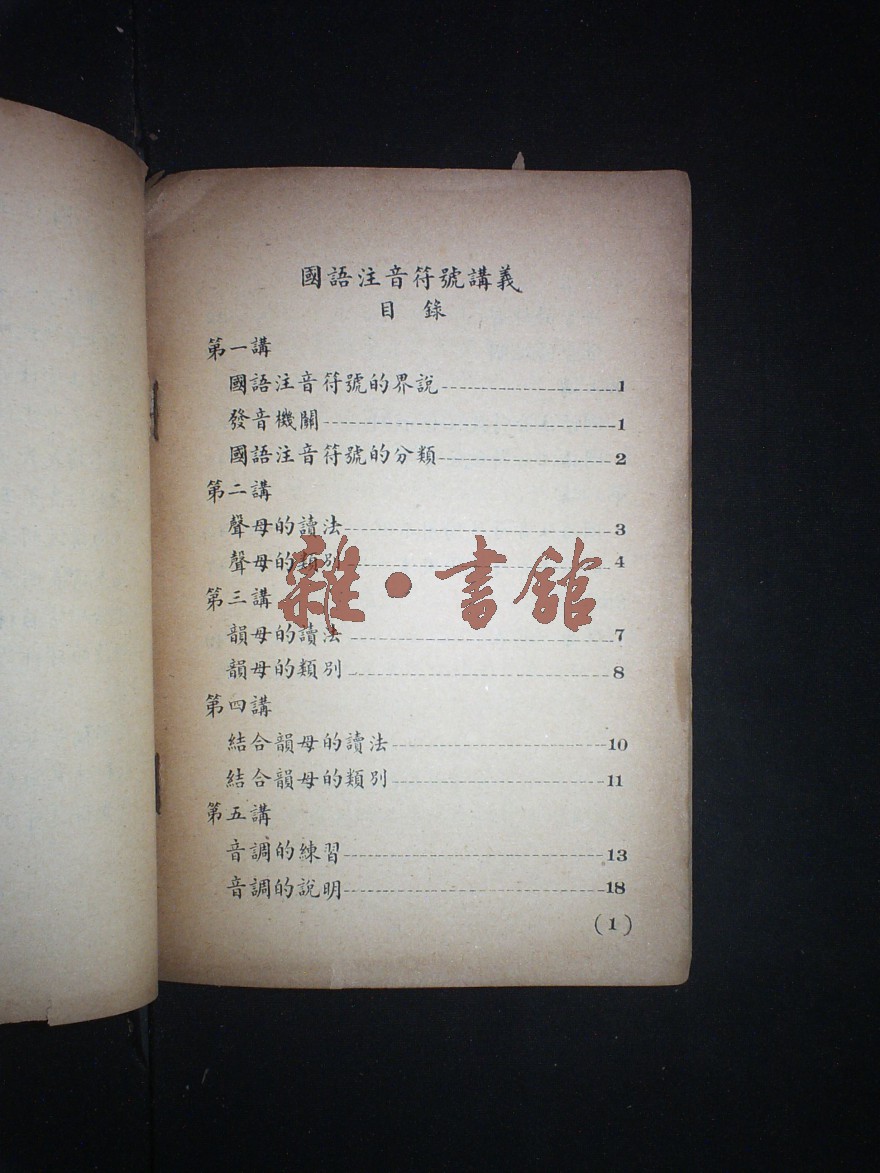 國語注音符號講義
目錄
第一講
國語注音符號的界說 1
發音機關 1
國語注音符號的分類 2
第二講
聲母的讀法 3
聲母的類別 4
雜·書館
第三講
韻母的讀法 7
韻母的類別 8
第四講
結合韻母的讀法 10
結合韻母的類別 11
第五講
音調的練習 13
音調的說明 18
(1)